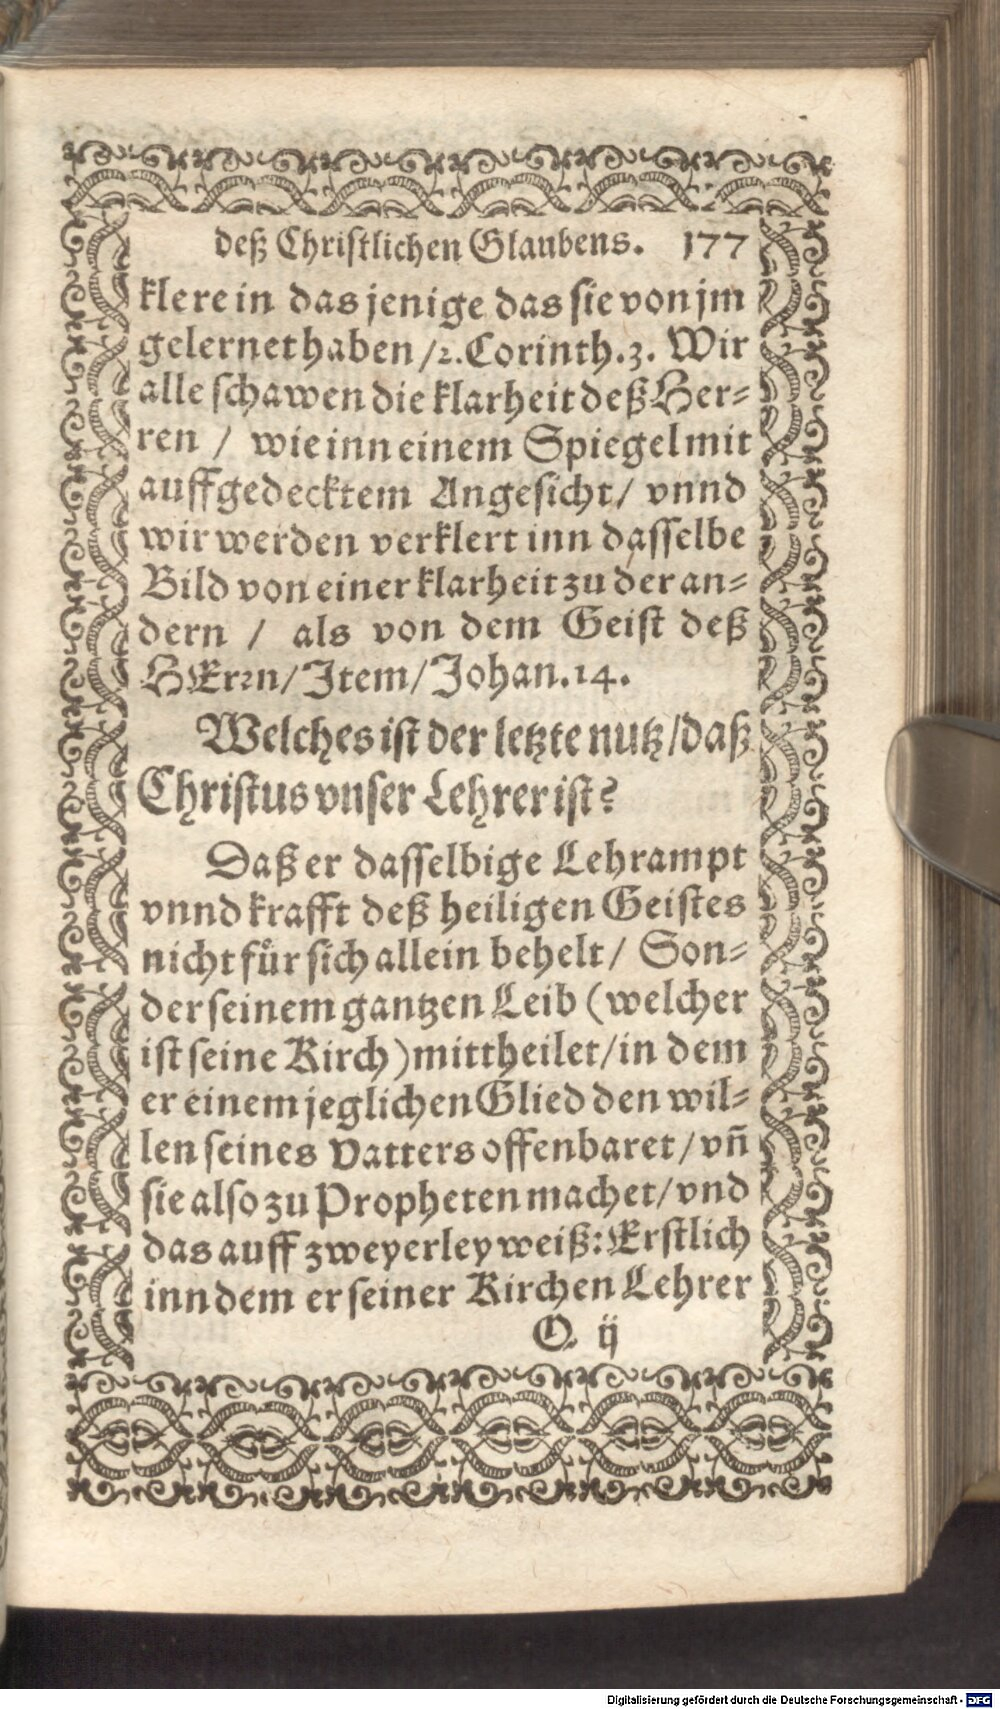 deß Christlichen Glaubens. 177
klere in das jenige das sie von jm
gelernet haben /2. Corinth. 3. Wir
alle schawen die klarheit deß Her-
ren / wie inn einem Spiegel mit
auffgedecktem Angesicht / vnnd
wir werden verklert inn dasselbe
Bild von einer klarheit zu der an-
dern / als von dem Geist deß
HErrn / Item / Johan. 14.
Welches ist der letzte nutz / daß
Christus vnser Lehrer ist?
Daß er dasselbige Lehrampt
vnnd krafft deß heiligen Geistes
nicht für sich allein behelt / Son-
der seinem gantzen Leib (welcher
ist seine Kirch) mittheilet / in dem
er einem jeglichen Glied den wil-
len seines Vatters offenbaret / vñ
sie also zu Propheten machet / vnd
das auff zweyerley weiß: Erstlich
inn dem er seiner Kirchen Lehrer
O ij
Digitalisierung gefördert durch die Deutsche Forschungsgemeinschaft - DFG